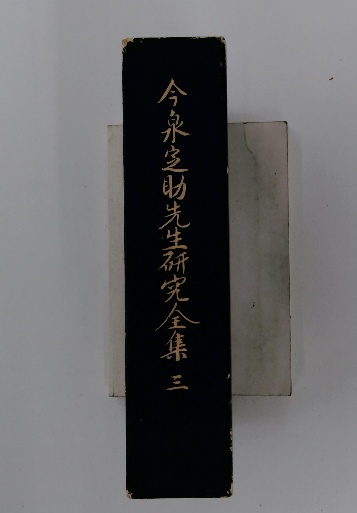 今泉定助先生研究全集 三